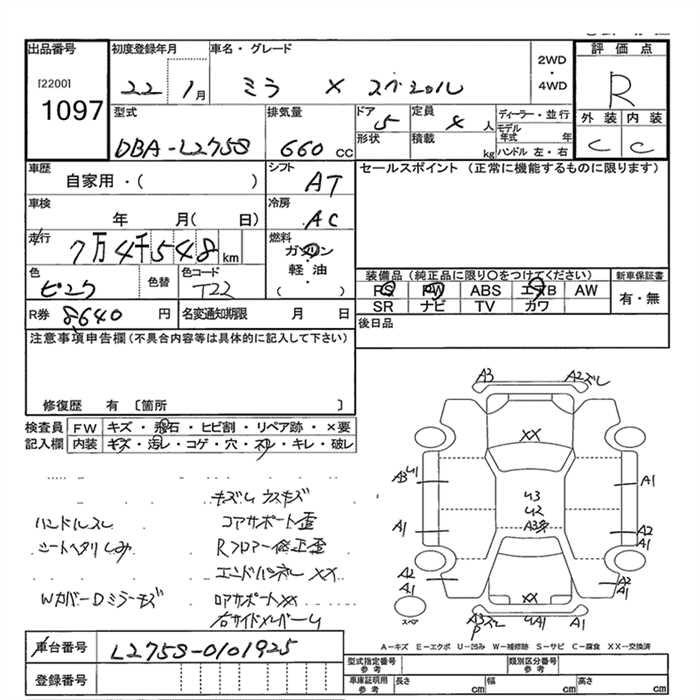 出品番号
[2200]
1097
初度登録年月
22 1月
車名・グレード
ミラ X スペシャル
2WD
・
4WD
評価点
R
外装 内装
C C
型式
DBA-L275S
排気量
660 cc
ドア
5
形状
定員
4 人
積載
kg
ディーラー・並行
モデル年式 年
ハンドル 左・右
車歴
自家用・( )
シフト
AT
車検
年 月( 日)
冷房
AC
走行
7万4千548 km
燃料
ガソリン
軽・油
( )
色
ピンク
色替
色コード
T22
R券 8640 円
名変通知期限 月 日
セールスポイント (正常に機能するものに限ります)
装備品(純正品に限り〇をつけてください)
PS PW ABS エアB AW
SR ナビ TV カワ
新車保証書
有・無
後日品
注意事項申告欄(不具合内容等は具体的に記入して下さい)
修復歴 有 〔箇所 〕
検査員記入欄
FW キズ・飛石・ヒビ割・リペア跡・×要
内装 キズ・汚レ・コゲ・穴・スレ・キレ・破レ
キズU ウスキズ
ハンドルスレ コアサポート歪
シートヘタリ シミ Rフロアー修正歪
エンドパネル XX
WカバーDミラーキズ ロアサポートXX
右サイドメンバーU
A3 A2ズレ
XX
A3 U1 A1
U3
U2
A3多
A1 A2
A1
A2
A1 A2
A1
XX
スペア
A3ズレ
P
A1
A-キズ E-エクボ U-凹み W-補修跡 S-サビ C-腐食 XX-交換済
車台番号 L275S-0101925
登録番号
型式指定番号
参考
類別区分番号
参考
車庫証明用
参考
長さ cm
幅 cm
高さ cm